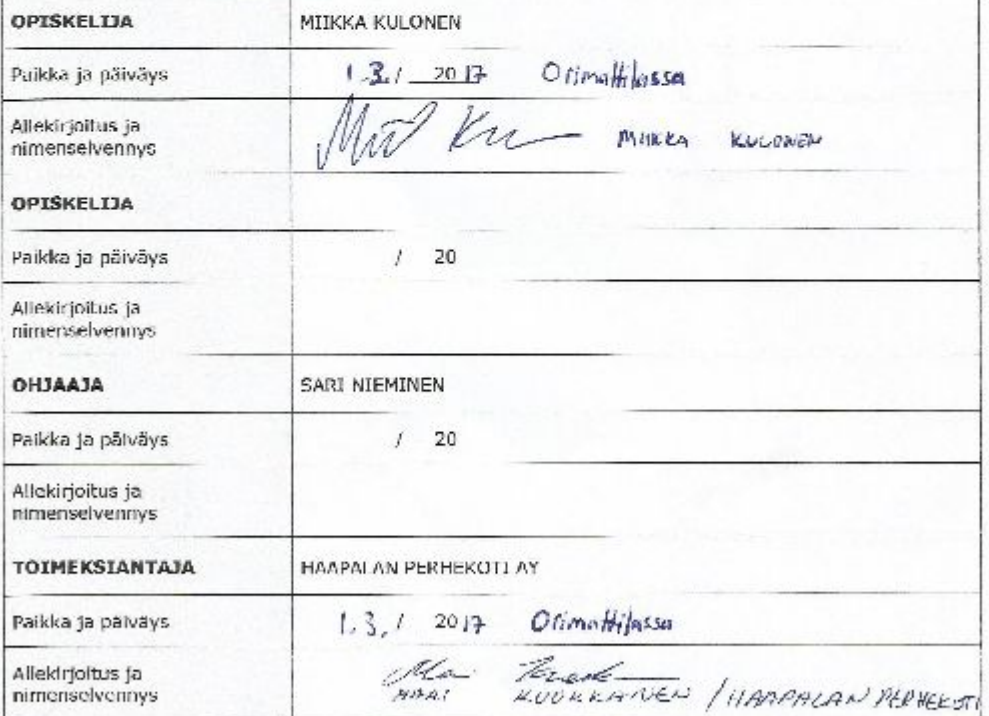 OPISKELIJA MIIKKA KULONEN
Paikka ja päiväys 1.3./ 2017 Orimattilassa
Allekirjoitus ja
nimenselvennys MIIKKA KULONEN
OPISKELIJA
Paikka ja päiväys / 20
Allekirjoitus ja
nimenselvennys
OHJAAJA SARI NIEMINEN
Paikka ja päiväys / 20
Allekirjoitus ja
nimenselvennys
TOIMEKSIANTAJA HAAPALAN PERHEKOTI AY
Paikka ja päiväys 1.3./ 2017 Orimattilassa
Allekirjoitus ja
nimenselvennys KUUKKANEN / HAAPALAN PERHEKOTI